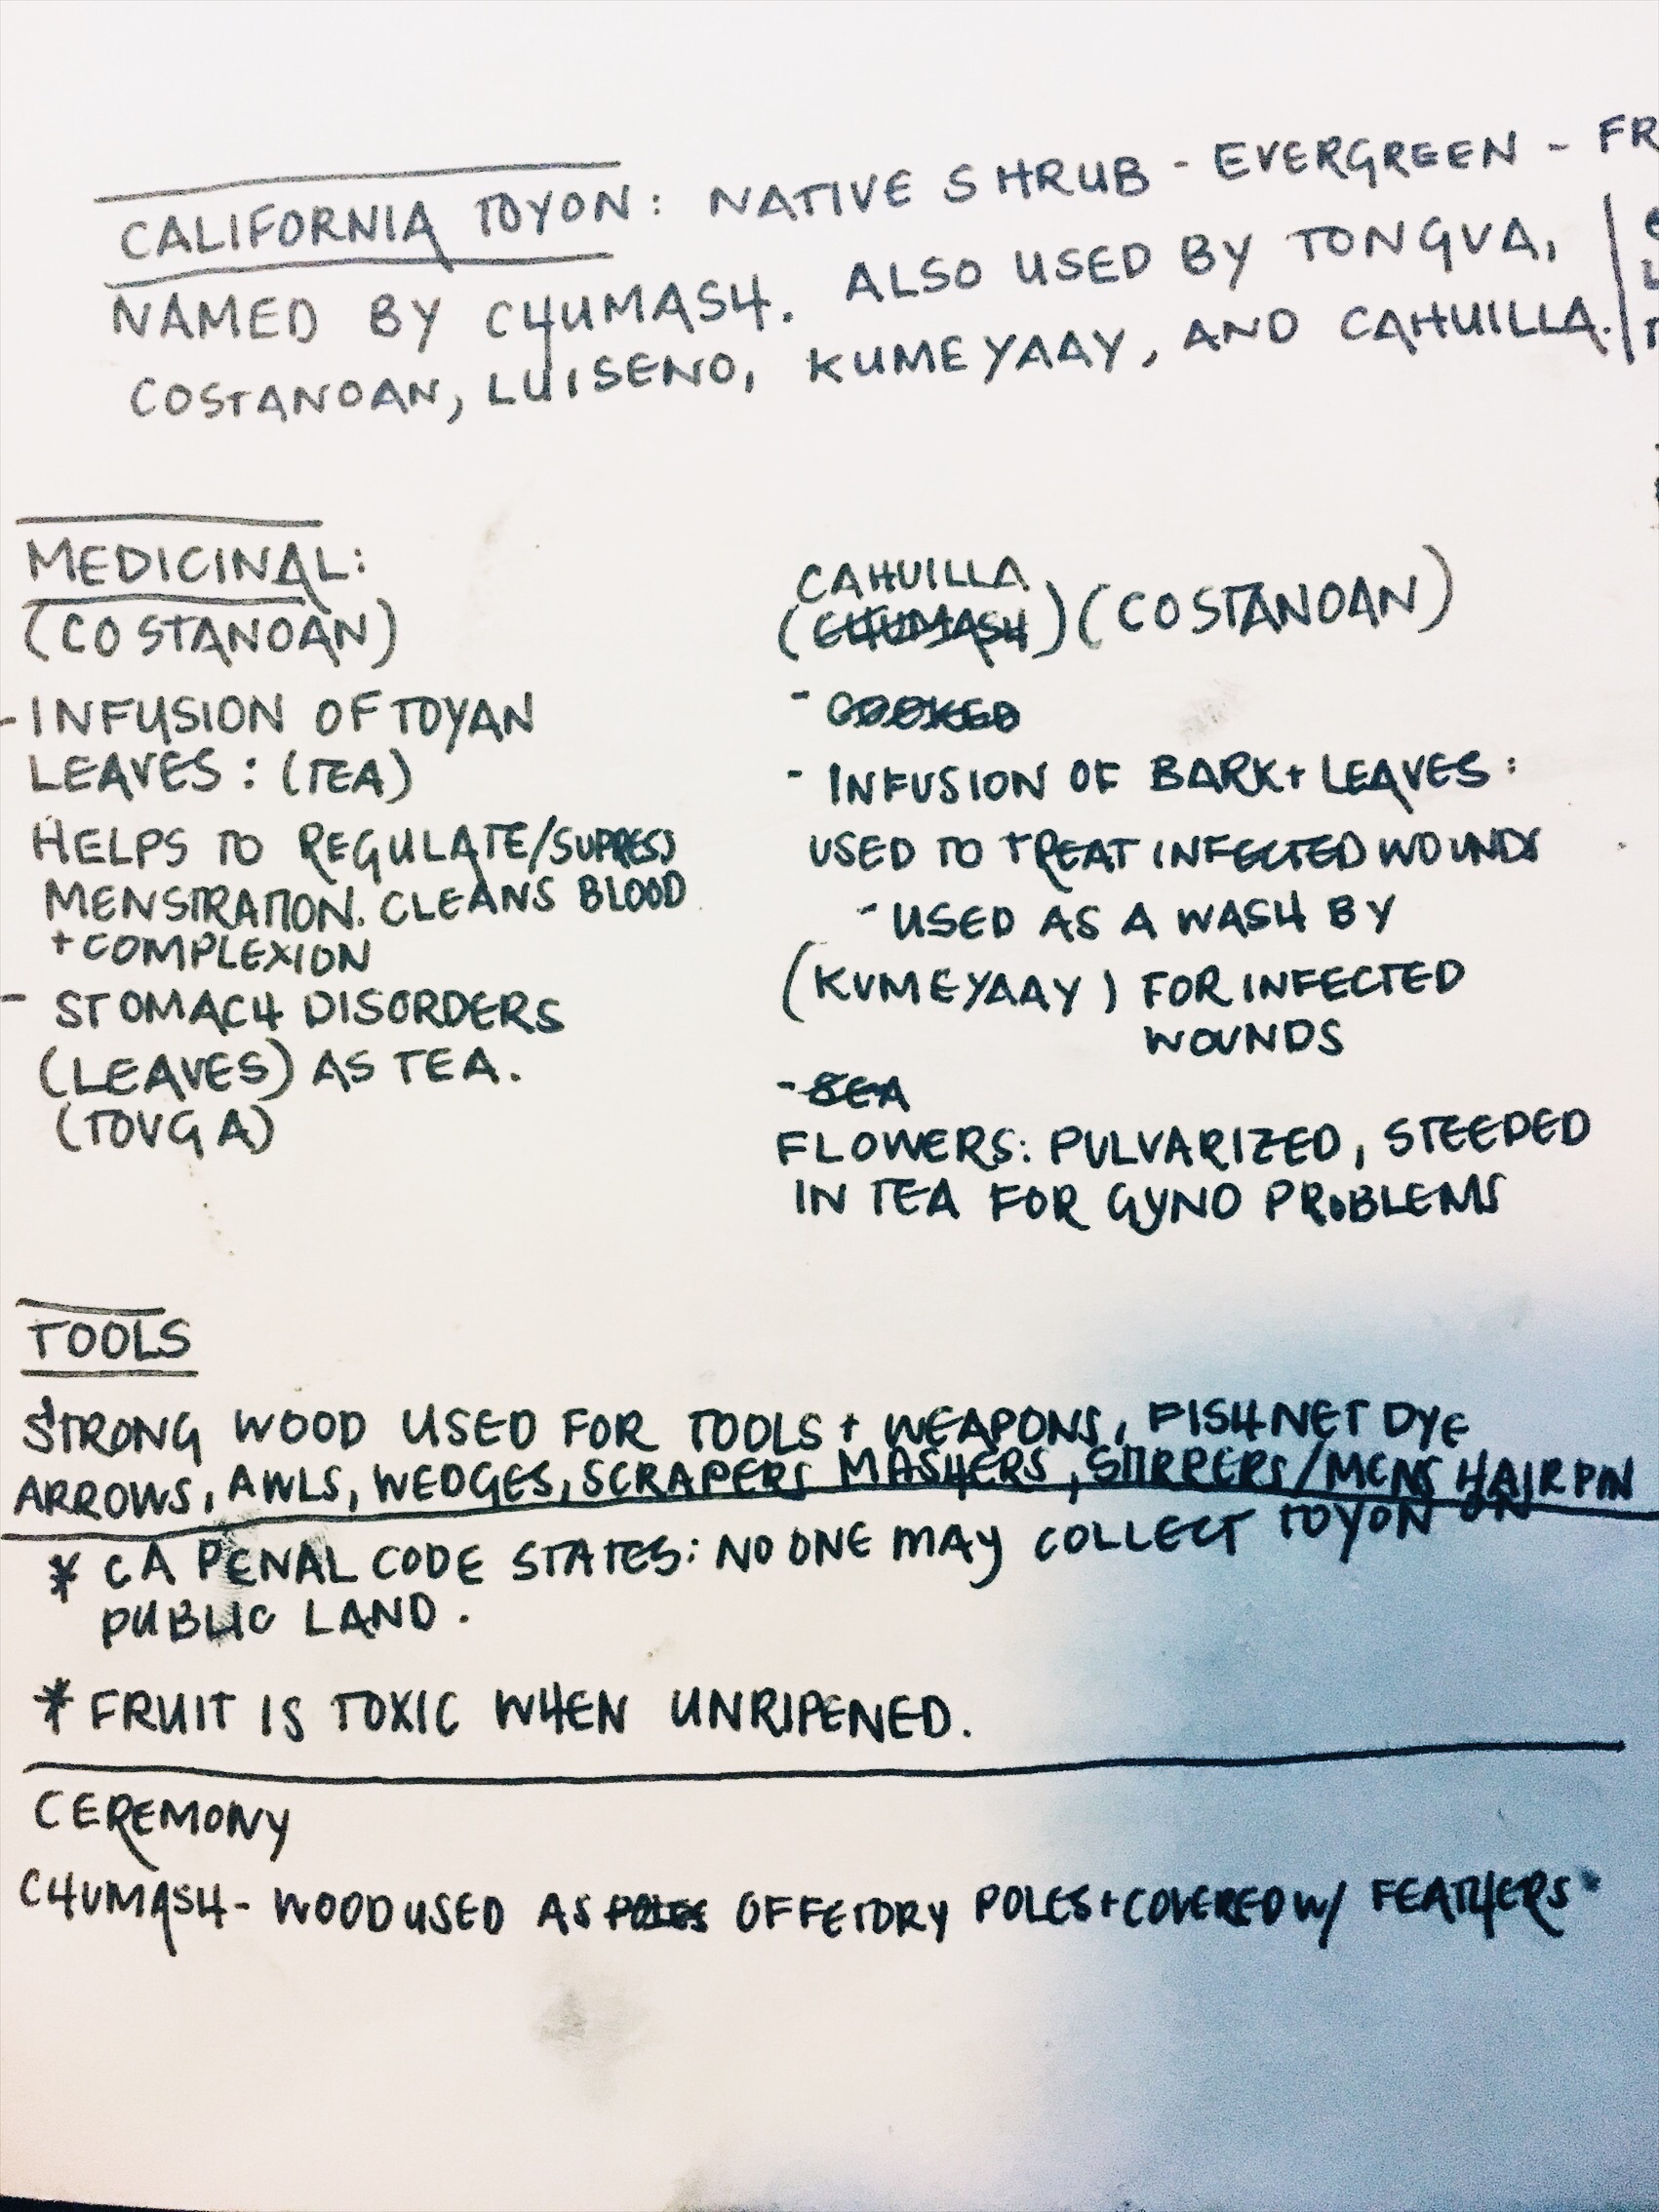 CALIFORNIA TOYON: NATIVE SHRUB - EVERGREEN - FR
NAMED BY CHUMASH. ALSO USED BY TONGVA,
COSTANOAN, LUISENO, KUMEYAAY, AND CAHUILLA.
MEDICINAL:
(COSTANOAN)
- INFUSION OF TOYAN
LEAVES: (TEA)
HELPS TO REGULATE/SUPRESS
MENSTRATION. CLEANS BLOOD
+ COMPLEXION
- STOMACH DISORDERS
(LEAVES) AS TEA.
(TOVGA)
CAHUILLA
(CHUMASH) (COSTANOAN)
- COOKED
- INFUSION OF BARK + LEAVES:
USED TO TREAT INFECTED WOUNDS
- USED AS A WASH BY
(KUMEYAAY) FOR INFECTED
WOUNDS
- SEA
FLOWERS: PULVARIZED, STEEPED
IN TEA FOR GYNO PROBLEMS
TOOLS
STRONG WOOD USED FOR TOOLS + WEAPONS, FISHNET DYE
ARROWS, AWLS, WEDGES, SCRAPERS MASHERS, STIRRERS/MENS HAIR PIN
* CA PENAL CODE STATES: NO ONE MAY COLLECT TOYON ON
PUBLIC LAND.
* FRUIT IS TOXIC WHEN UNRIPENED.
CEREMONY
CHUMASH - WOOD USED AS POLES OFFETORY POLES + COVERED W/ FEATHERS*